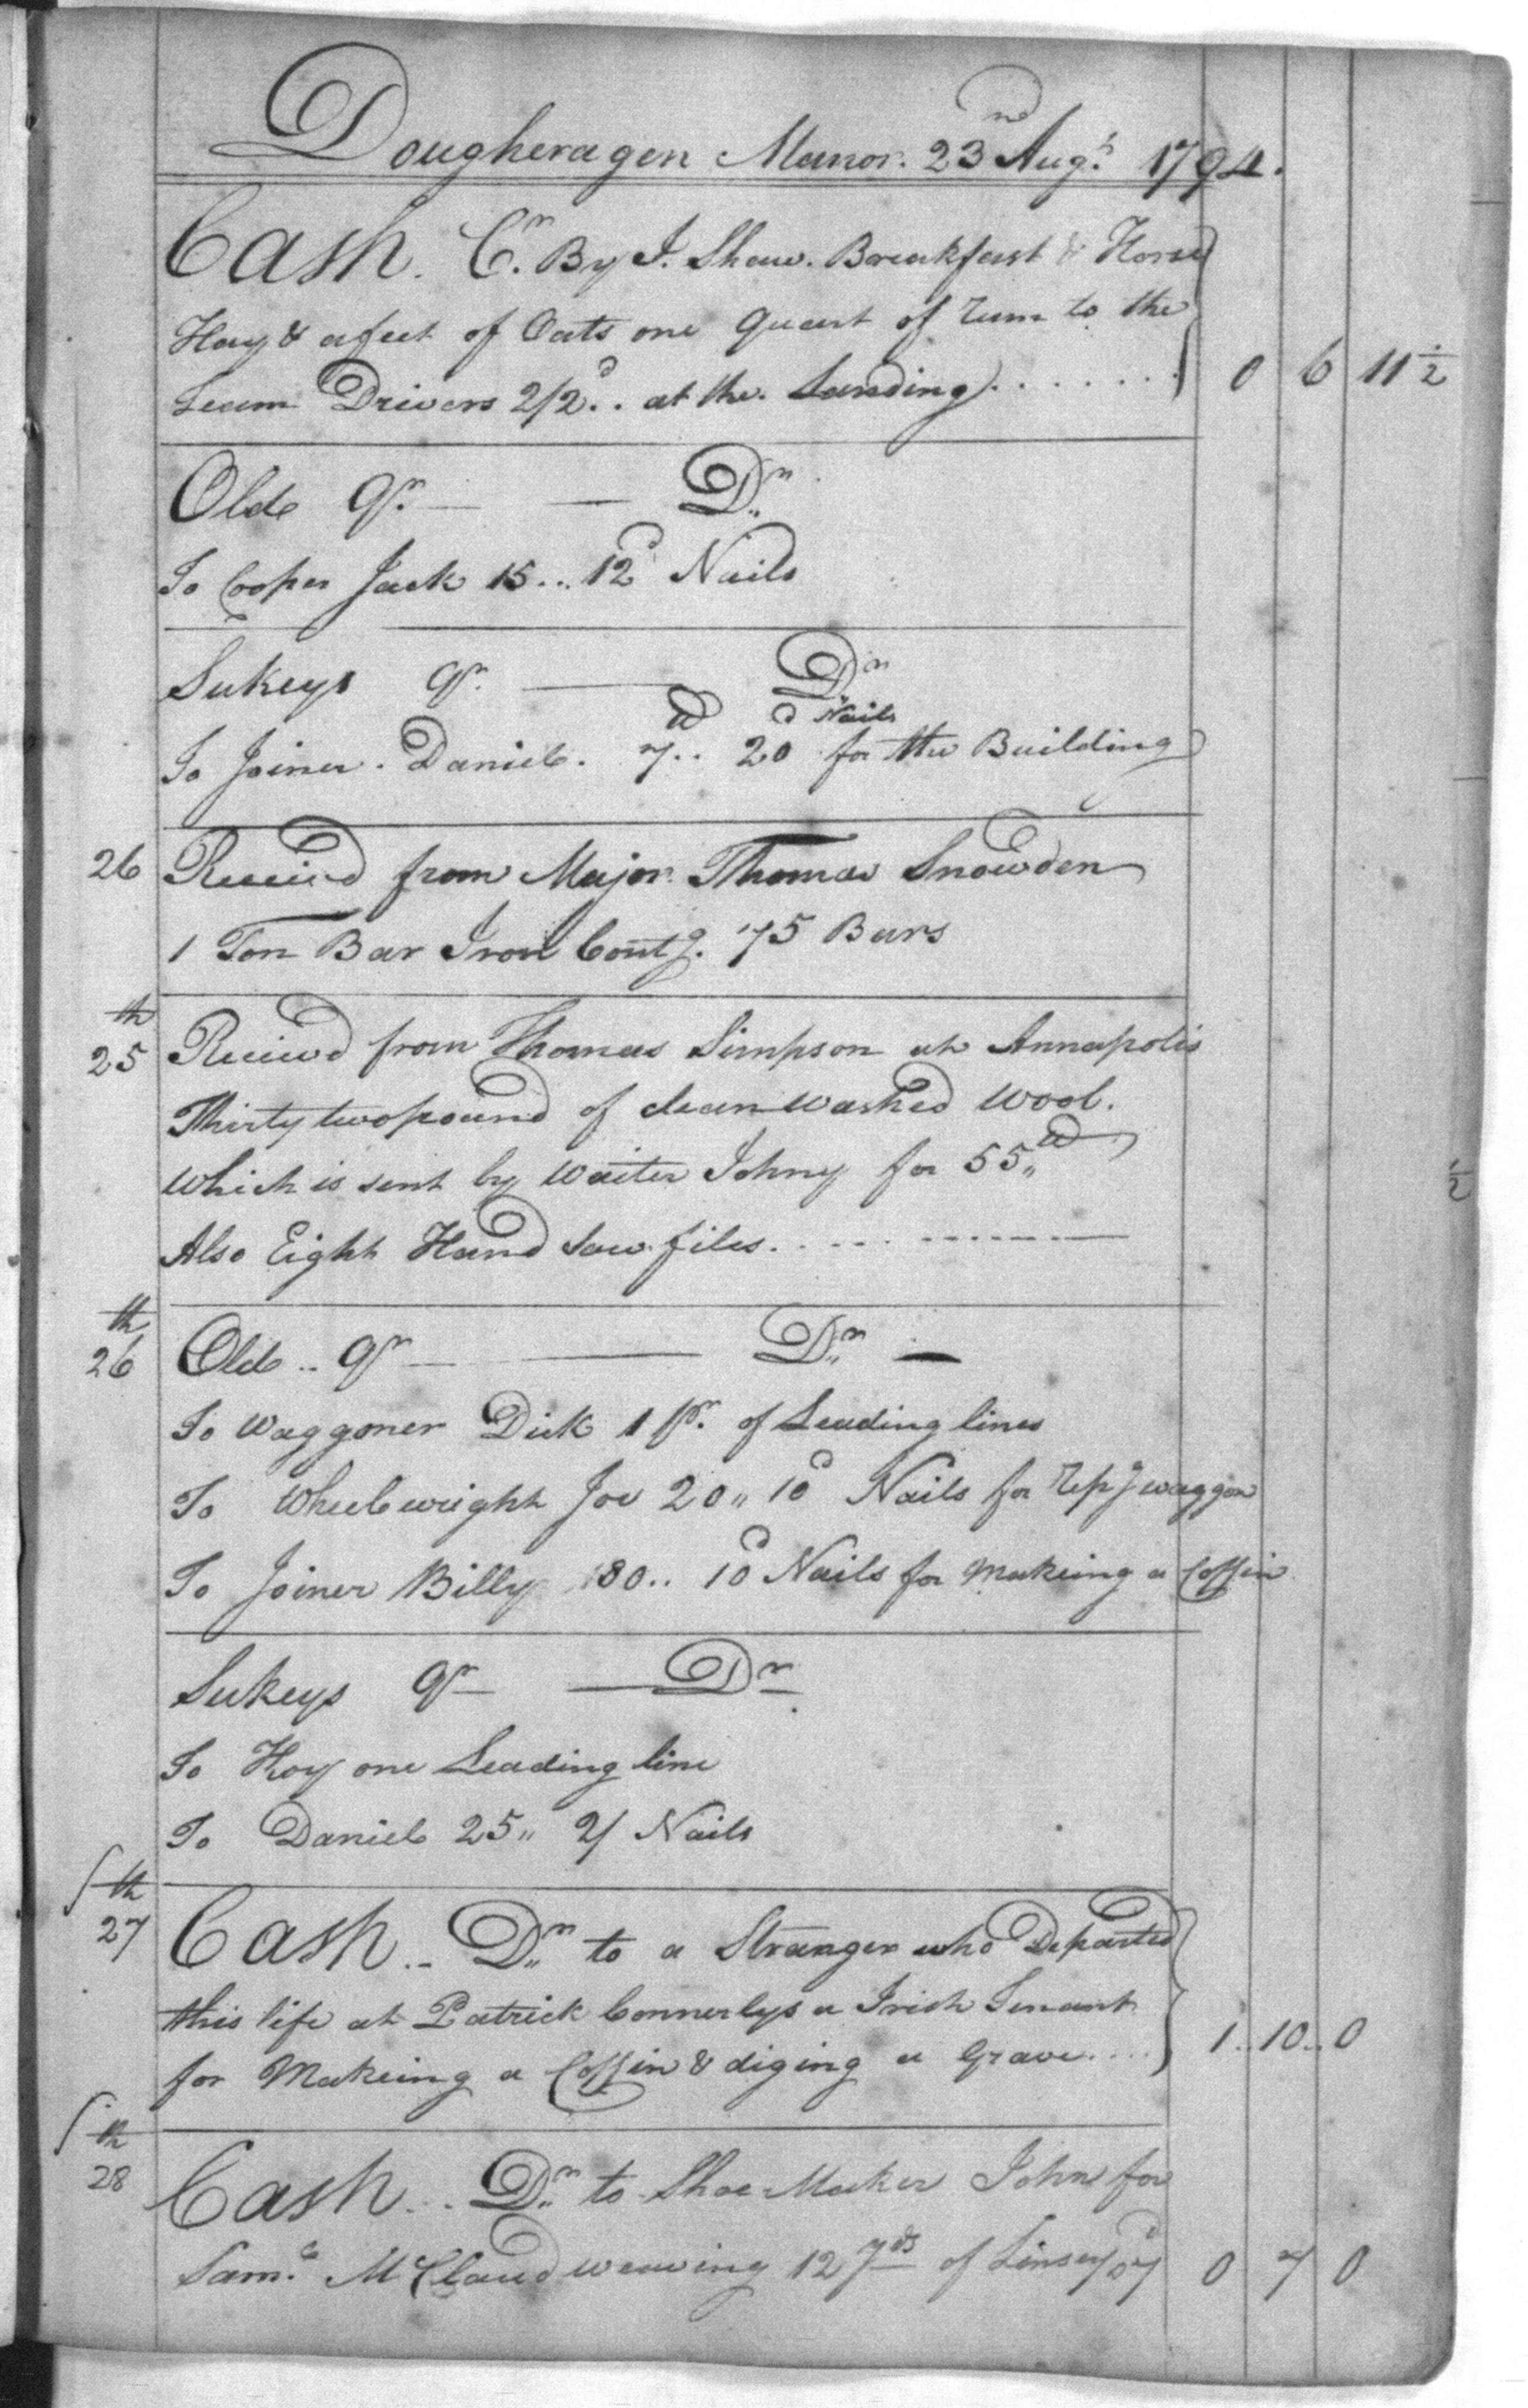 Dougheragen Manor. 23nd Augt. 1794.
Cash. Cr. By J. Shaw. Breakfast & Horse
Hay & afeet of Oats one Quart of rum to the
team Drivers 2/2d.. at the Landing....... 0 6 11 1/2
Olde Qr. — — Dr.
To Cooper Jack 15... 12d Nails
Sukeys Qr. — Dr
To Joiner. Daniel. 7.. 20d Nails for the Building
26 Receivd from Major Thomas Snowden
1 Ton Bar Iron Contg. 75 Bars
25th Reciev'd from Thomas Simpson at Annapolis
Thirty two pound of clean washed wool.
which is sent by waiter Johny for 55
Also Eight Hand Saw files........
26th Olde.. Qr — — Dr. —
To Waggoner Dick 1 pr. of Leading lines
To Wheelwright Joe 20,, 10d Nails for repg waggon
To Joiner Billy 180.. 10d Nails for Makeing a Coffin
Sukeys Qr — Dr
To Hoy one Leading line
To Daniel 25,, 2/ Nails
27th Cash.. Dr. to a Stranger who Departed
this life at Patrick Connerlys a Irish Tenant
for Makeing a Coffin & diging a Grave.... 1..10..0
28th Cash... Dr. to Shoe Maker John for
Saml. McClaud weaving 12 yds of Linsey 7d 0 7 0